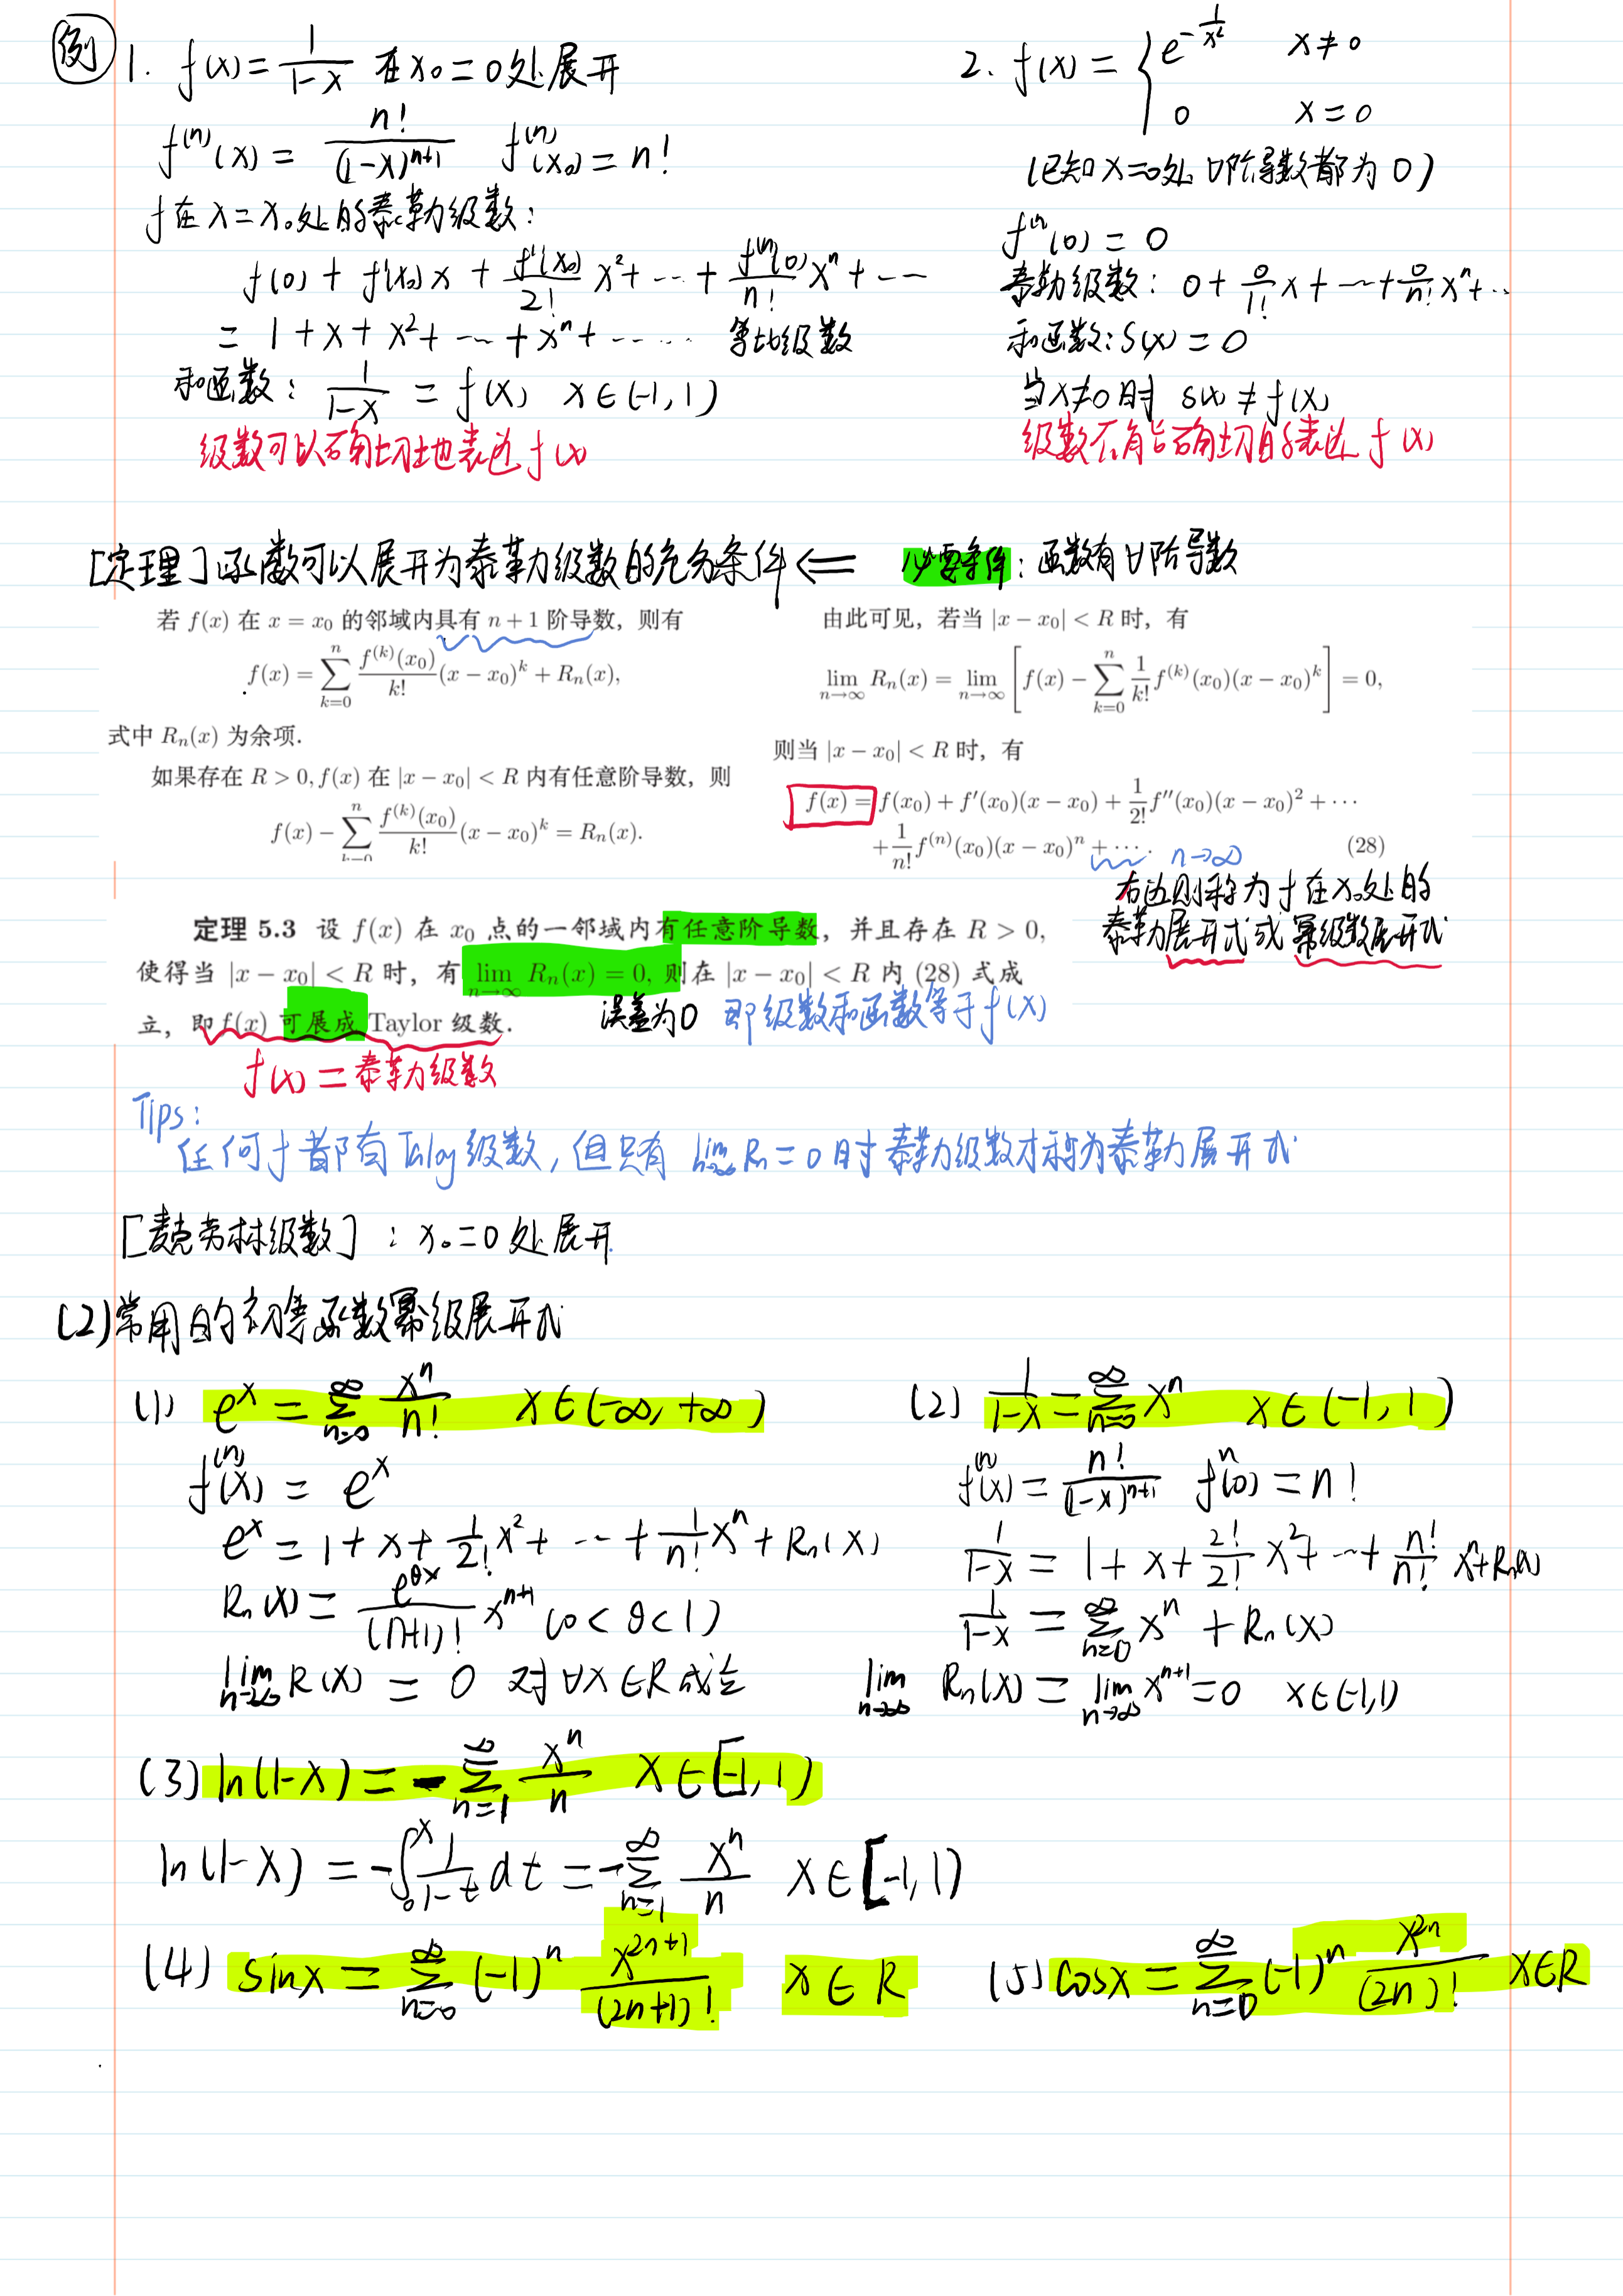 例 1. f(x) = 1/(1-x) 在 x₀ = 0处展开
f⁽ⁿ⁾(x) = n!/(1-x)ⁿ⁺¹ f⁽ⁿ⁾(x₀) = n!
f 在 x = x₀处的泰勒级数:
f(0) + f'(x₀)x + f''(x₀)/2! x² + … + f⁽ⁿ⁾(0)/n! xⁿ + …
= 1 + x + x² + … + xⁿ + …… 等比级数
和函数: 1/(1-x) = f(x) x∈(-1,1)
级数可以确切地表达 f(x)
2. f(x) = { e^(-1/x²) x≠0
0 x=0
(已知x=0处 ∀阶导数都为0)
f⁽ⁿ⁾(0) = 0
泰勒级数: 0 + 0/1! x + … + 0/n! xⁿ + ..
和函数: S(x) = 0
当x≠0时 S(x) ≠ f(x)
级数不能确切的表达 f(x)
[定理] 函数可以展开为泰勒级数的充分条件 ⇐ 必要条件: 函数有∀阶导数
若 f(x) 在 x = x₀ 的邻域内具有 n + 1 阶导数, 则有
f(x) = ∑_{k=0}^{n} f⁽ᵏ⁾(x₀)/k! (x − x₀)ᵏ + Rₙ(x),
式中 Rₙ(x) 为余项.
如果存在 R > 0, f(x) 在 |x − x₀| < R 内有任意阶导数, 则
f(x) − ∑_{k=0}^{n} f⁽ᵏ⁾(x₀)/k! (x − x₀)ᵏ = Rₙ(x).
由此可见, 若当 |x − x₀| < R 时, 有
lim_{n→∞} Rₙ(x) = lim_{n→∞} [f(x) − ∑_{k=0}^{n} 1/k! f⁽ᵏ⁾(x₀)(x − x₀)ᵏ] = 0,
则当 |x − x₀| < R 时, 有
f(x) = f(x₀) + f′(x₀)(x − x₀) + 1/2! f″(x₀)(x − x₀)² + ⋯
+ 1/n! f⁽ⁿ⁾(x₀)(x − x₀)ⁿ + ⋯. (28)
n→∞
右边则称为 f 在 x₀处的
泰勒展开式或幂级数展开式
定理 5.3 设 f(x) 在 x₀ 点的一邻域内有任意阶导数, 并且存在 R > 0,
使得当 |x − x₀| < R 时, 有 lim_{n→∞} Rₙ(x) = 0, 则在 |x − x₀| < R 内 (28) 式成
立, 即 f(x) 可展成 Taylor 级数.
误差为0 即级数和函数等于 f(x)
f(x) = 泰勒级数
Tips:
任何 f 都有 Talog 级数, 但只有 lim_{n→∞} Rₙ = 0 时泰勒级数才称为泰勒展开式
[麦克劳林级数] : x₀ = 0 处展开.
(2) 常用的初等函数幂级展开式
(1) eˣ = ∑_{n=0}^{∞} xⁿ/n! x∈(-∞, +∞)
f⁽ⁿ⁾(x) = eˣ
eˣ = 1 + x + 1/2! x² + … + 1/n! xⁿ + Rₙ(x)
Rₙ(x) = e^{θx}/(n+1)! xⁿ⁺¹ (0<θ<1)
lim_{n→∞} R(x) = 0 对∀x∈R成立
(2) 1/(1-x) = ∑_{n=0}^{∞} xⁿ x∈(-1, 1)
f⁽ⁿ⁾(x) = n!/(1-x)ⁿ⁺¹ fⁿ(0) = n!
1/(1-x) = 1 + x + 2!/2! x² + … + n!/n! xⁿ + Rₙ(x)
1/(1-x) = ∑_{n=0}^{∞} xⁿ + Rₙ(x)
lim_{n→∞} Rₙ(x) = lim_{n→∞} xⁿ⁺¹ = 0 x∈(-1,1)
(3) ln(1-x) = -∑_{n=1}^{∞} xⁿ/n x∈[-1, 1)
ln(1-x) = -∫₀ˣ 1/(1-t) dt = -∑_{n=1}^{∞} xⁿ/n x∈[-1,1)
(4) sinx = ∑_{n=0}^{∞} (-1)ⁿ x²ⁿ⁺¹/(2n+1)! x∈R
(5) cosx = ∑_{n=0}^{∞} (-1)ⁿ x²ⁿ/(2n)! x∈R